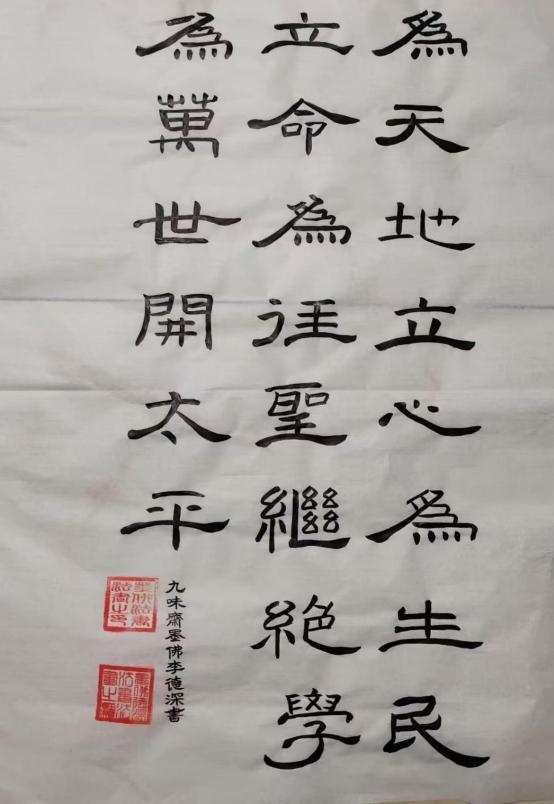 為天地立心為生民
立命為往聖繼絶學
為萬世開太平
九味齋墨佛李德深書